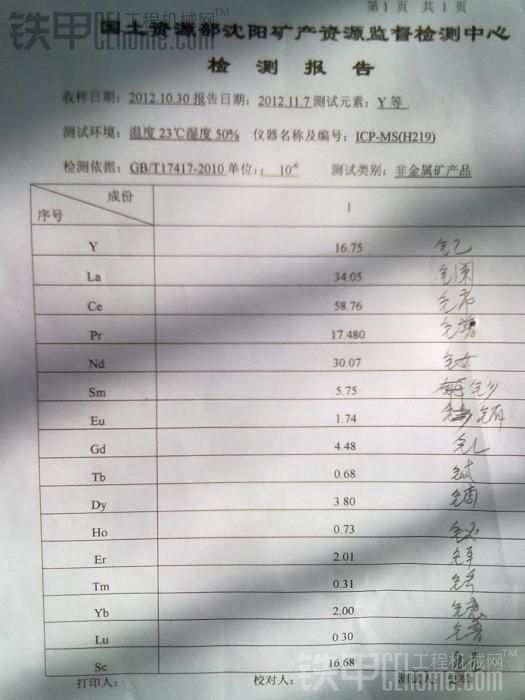 铁甲 工程机械网
第 1 页 共 1 页
国土资源部沈阳矿产资源监督检测中心
检 测 报 告
收样日期：2012.10.30 报告日期：2012.11.7 测试元素：Y 等
测试环境：温度 23℃湿度 50% 仪器名称及编号：ICP-MS(H219)
检测依据：GB/T17417-2010 单位：： 10⁻⁶ 测试类别：非金属矿产品
序号 成份 1
Y 16.75 钇
La 34.05 镧
Ce 58.76 铈
Pr 17.480 镨
Nd 30.07 钕
Sm 5.75 钐
Eu 1.74 铕
Gd 4.48 钆
Tb 0.68 铽
Dy 3.80 镝
Ho 0.73 钬
Er 2.01
Tm 0.31
Yb 2.00
Lu 0.30
Sc 16.68
打印人： 校对人： 测试人：
铁甲 工程机械网